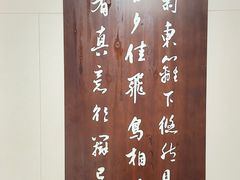 菊東籬下悠然見
夕佳飛鳥相
有真意欲辨已